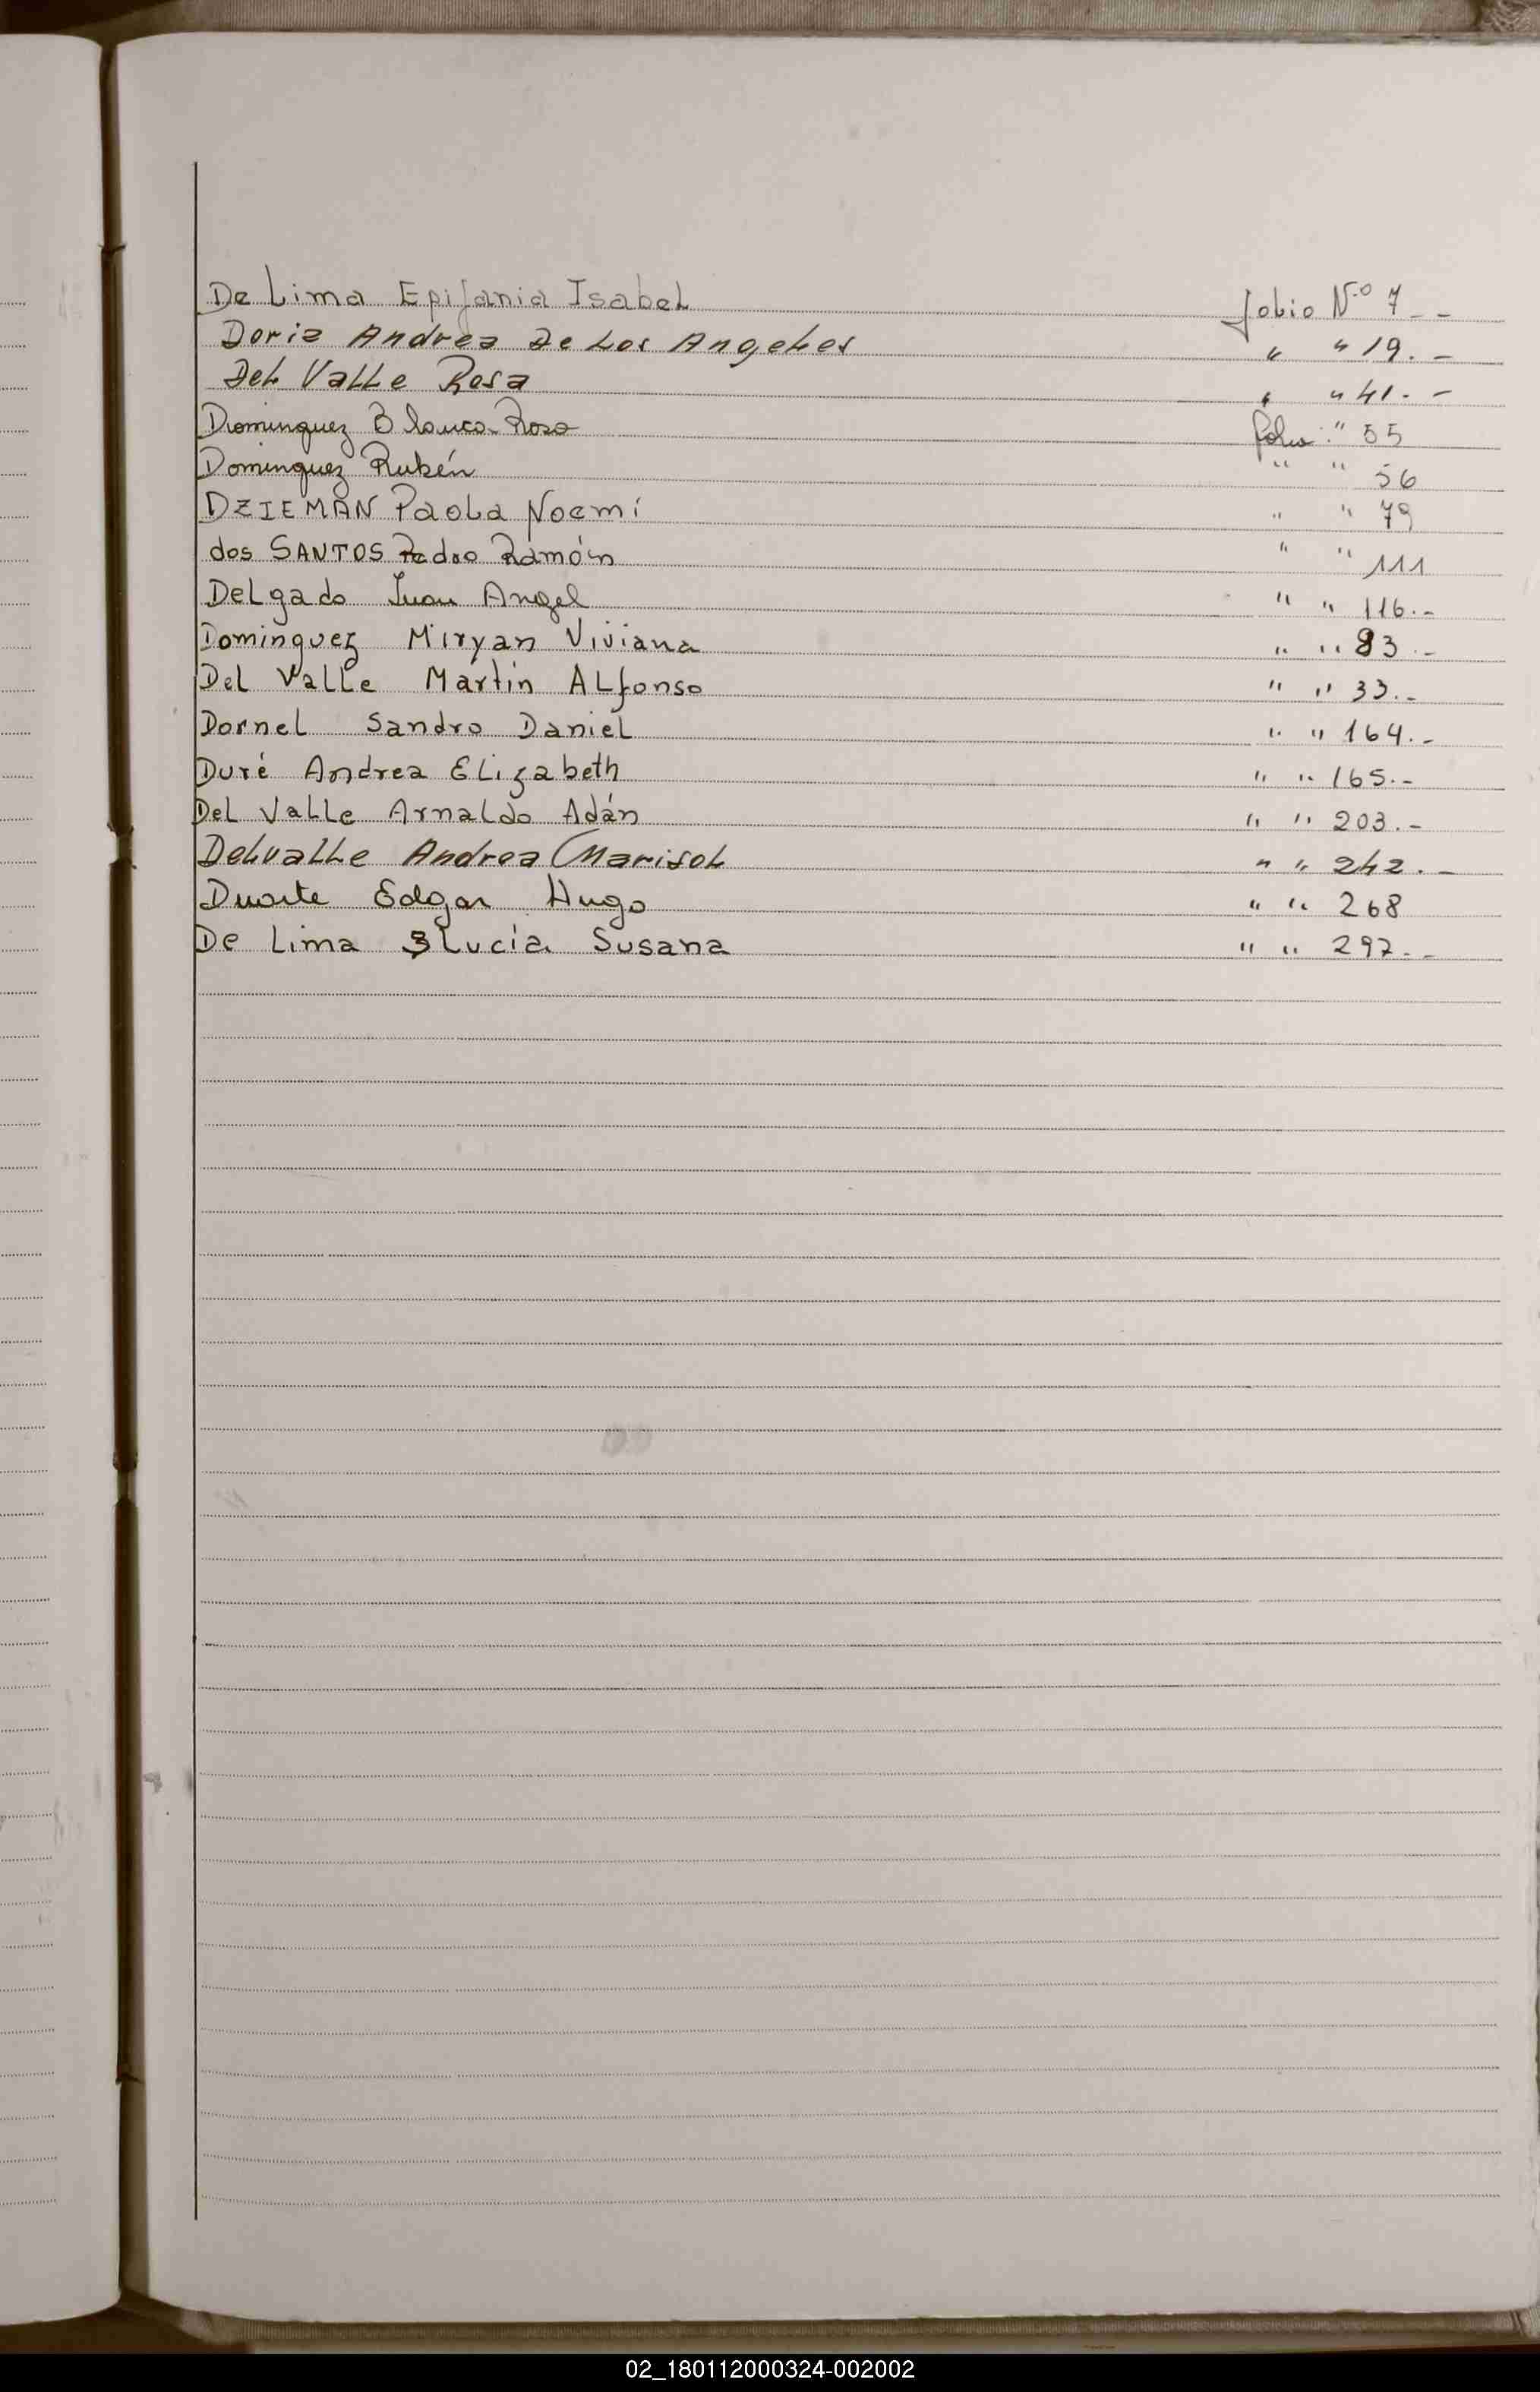 De Lima Epifania Isabel folio Nº 7 - -
Doria Andrea De Los Angeles " " 19. -
Del Valle Rosa " " 41. -
Dominguez Blanca Rosa folio " 55
Dominguez Rubén " " 56
DZIEMAN Paola Noemí " " 79
dos SANTOS Pedro Ramón " " 111
Delgado Juan Angel " " 116.-
Dominguez Miryan Viviana " " 83.-
Del Valle Martin Alfonso " " 33.-
Dornel Sandro Daniel " " 164.-
Duré Andrea Elizabeth " " 165.-
Del Valle Arnaldo Adán " " 203.-
Delvalle Andrea Marisol " " 242.-
Duarte Edgar Hugo " " 268
De Lima Lucía Susana " " 297.-
02_180112000324-002002